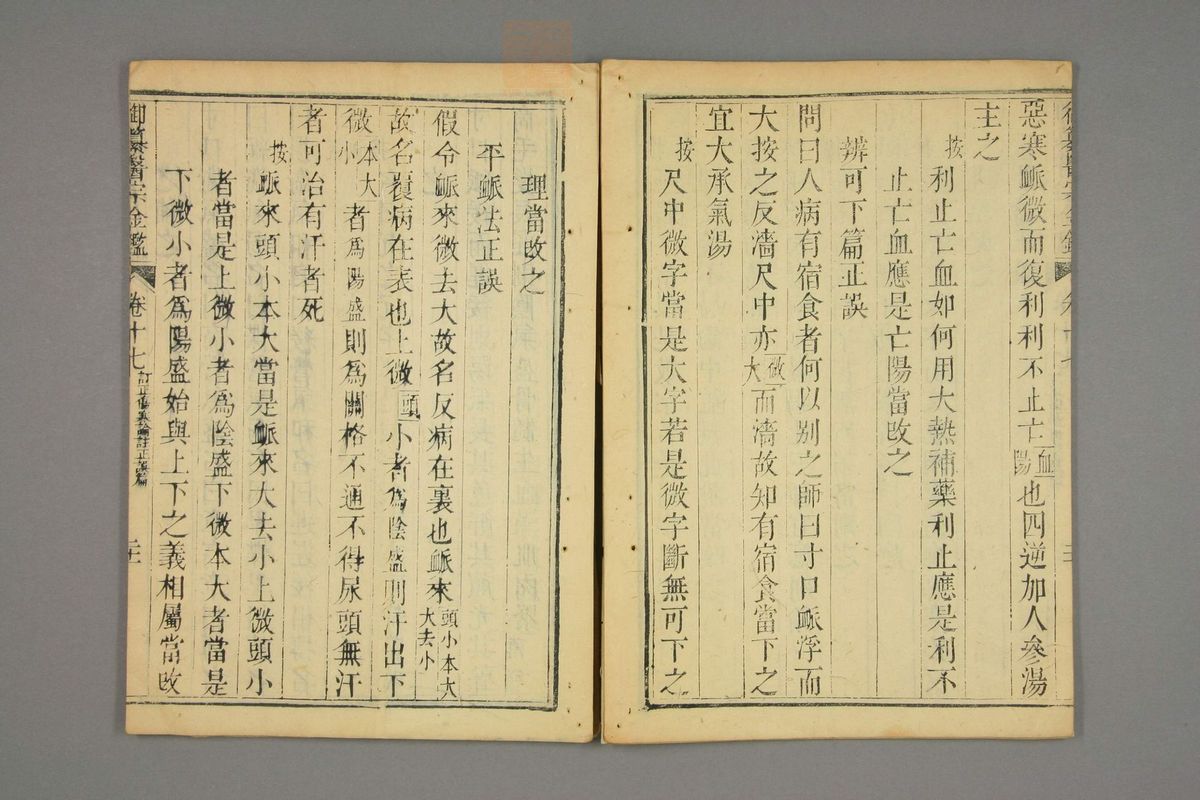 惡寒脈微而復利利不止亡血陽也四逆加人參湯
主之
按利止亡血如何用大熱補藥利止應是利不
止亡血應是亡陽當改之
辨可下篇正誤
問曰人病有宿食者何以別之師曰寸口脈浮而
大按之反濇尺中亦微大而濇故知有宿食當下之
宜大承氣湯
按尺中微字當是大字若是微字斷無可下之
理當改之
平脈法正誤
假令脈來微去大故名反病在裏也脈來頭小本大大去小
故名覆病在表也上微頭小者為陰盛則汗出下
微本大小者為陽盛則為關格不通不得尿頭無汗
者可治有汗者死
按脈來頭小本大當是脈來大去小上微頭小
者當是上微小者為陰盛下微本大者當是
下微小者為陽盛始與上下之義相屬當改
御纂醫宗金鑑
卷十七
訂正傷寒論註正誤篇